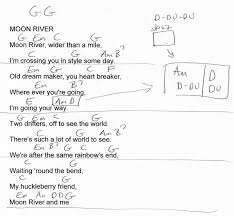 G G
D-DU-DU
MOON RIVER
G Em C G
Moon River, wider than a mile,
C G Am B7
I'm crossing you in style some day.
Em G C F
Old dream maker, you heart breaker,
Em B7
Where ever you're going,
E Am D
I'm going your way.
Am D
D-DU DU
G Em C G
Two drifters, off to see the world.
C G Am B7
There's such a lot of world to see.
Em B7 G C G
We're after the same rainbow's end,
C G
Waiting 'round the bend,
C G
My huckleberry friend,
Em Am D D G
Moon River and me